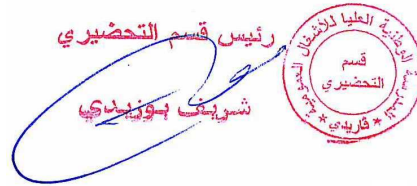 رئيس قسم التحضيري
شريف بوزيدي
المدرسة الوطنية العليا للأشغال العمومية
قسم
التحضيري
* ڨاريدي *